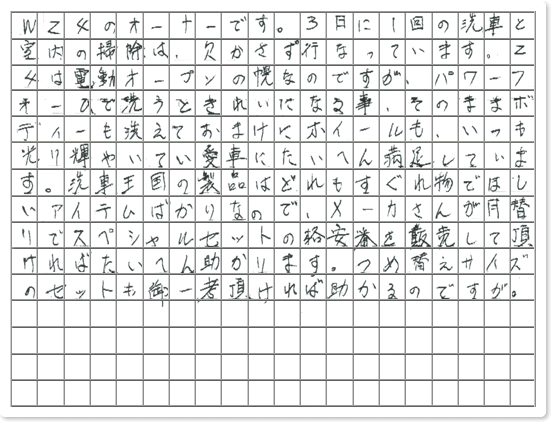 WZ4のオーナーです。3日に1回の洗車と
室内の掃除は、欠かさず行なっています。Z
4は電動オープンの幌なのですが、パワーフ
ォームで洗うときれいになる事、そのままボ
ディーも洗えておまけにホイールも、いつも
光り輝やいてい愛車にたいへん満足していま
す。洗車王国の製品はどれもすぐれ物でほし
いアイテムばかりなので、メーカさんが月替
りでスペシャルセットの格安番を販売して頂
ければたいへん助かります。つめ替えサイズ
のセットも御一考頂ければ助かるのですが。